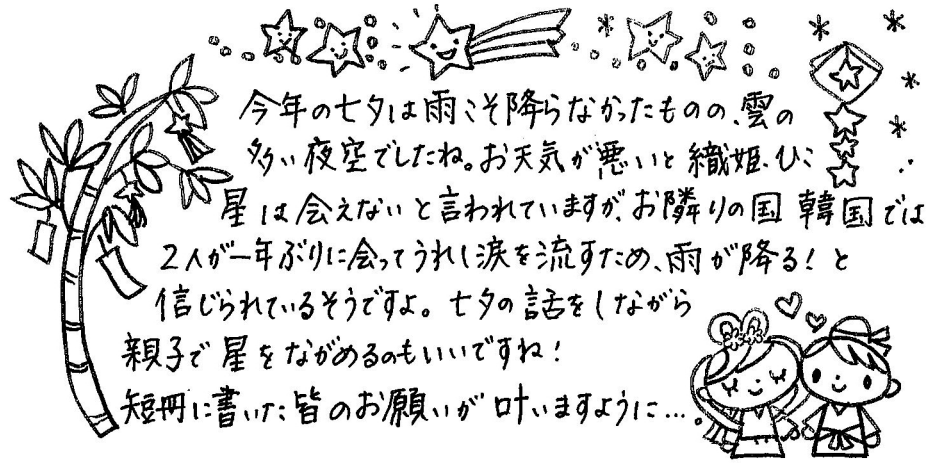 今年の七夕は雨こそ降らなかったものの、雲の
多い夜空でしたね。お天気が悪いと織姫、ひこ
星は会えないと言われていますが、お隣りの国 韓国では
2人が一年ぶりに会ってうれし涙を流すため、雨が降る!と
信じられているそうですよ。七夕の話をしながら
親子で星をながめるのもいいですね!
短冊に書いた皆のお願いが叶いますように…